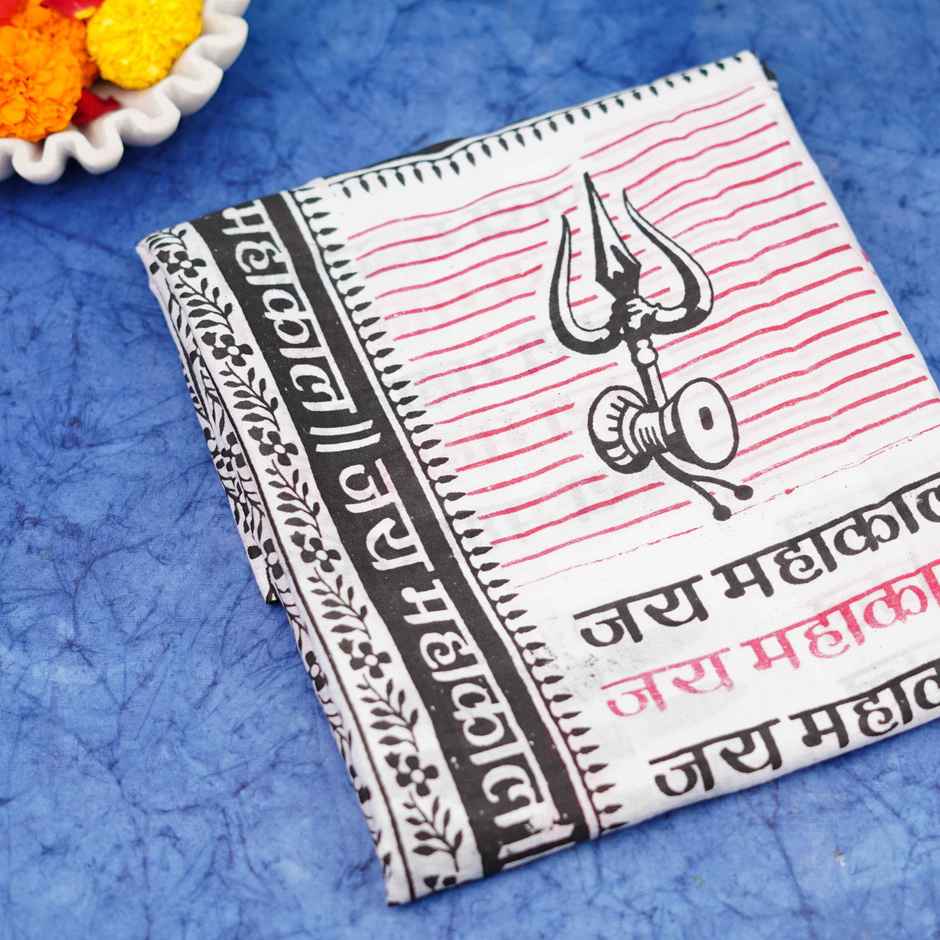 महाकाल ॥ जय महाकाल ॥
जय महाकाल
जय महाका
जय महाक